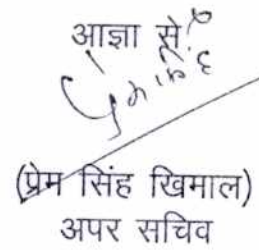 आज्ञा से,
(प्रेम सिंह खिमाल)
अपर सचिव